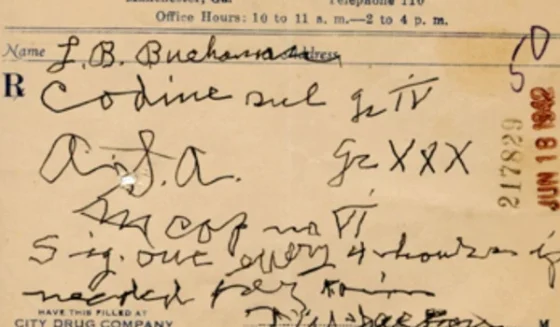 Manchester, Ga. Telephone 110
Office Hours: 10 to 11 a. m.—2 to 4 p. m.
Name L. B. Buchanan Address
50
R Codine sul gr IV
A.S.A. gr XXX
M cap no VI
Sig. one every 4 hours if
needed for pain
217829
JUN 18 1942
HAVE THIS FILLED AT
CITY DRUG COMPANY